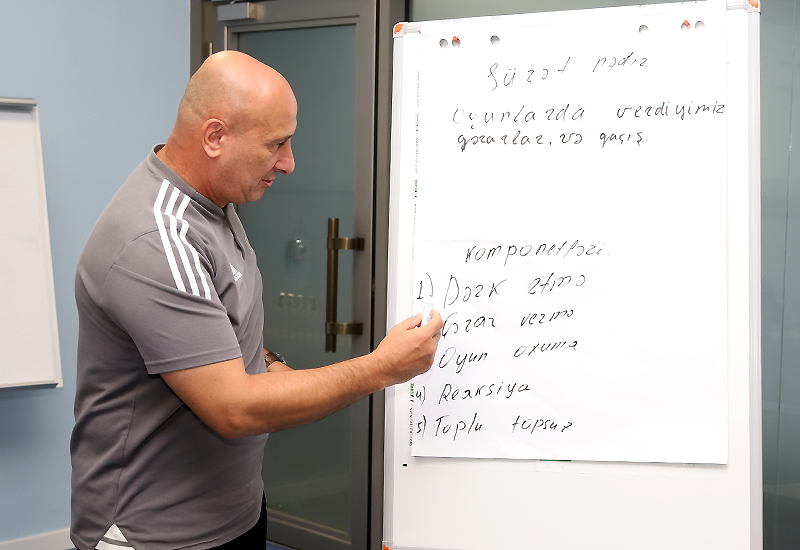 Sürət nədir
Oyunlarda verdiyimiz
qərarlar, və qaçış.
Komponetləri.
1) Dərk etmə
Qərar vermə
Oyun oxuma
4) Reaksiya
5) Toplu topsuz